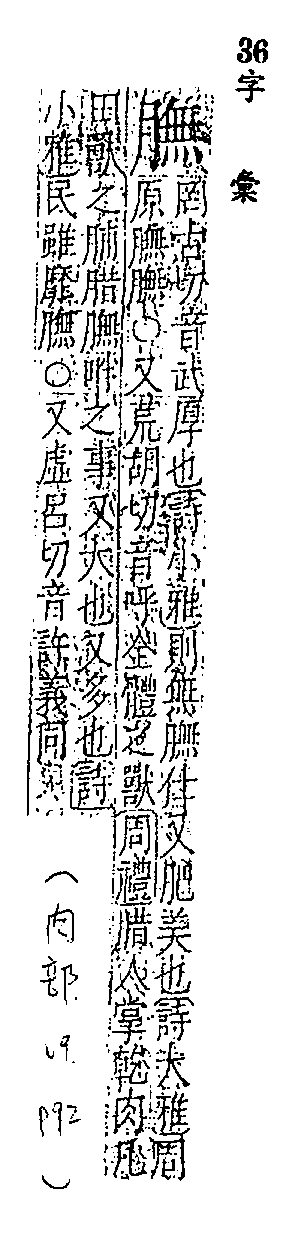 36 字彙
膴 罔古切音武厚也詩小雅則無膴仕又肥美也詩大雅周
原膴膴○又荒胡切音呼全體之獸周禮腊人掌乾肉凡
田獸之脯腊膴胖之事又大也又多也詩
小雅民雖靡膴○又虛呂切音許義同
(肉部 v9. p92)